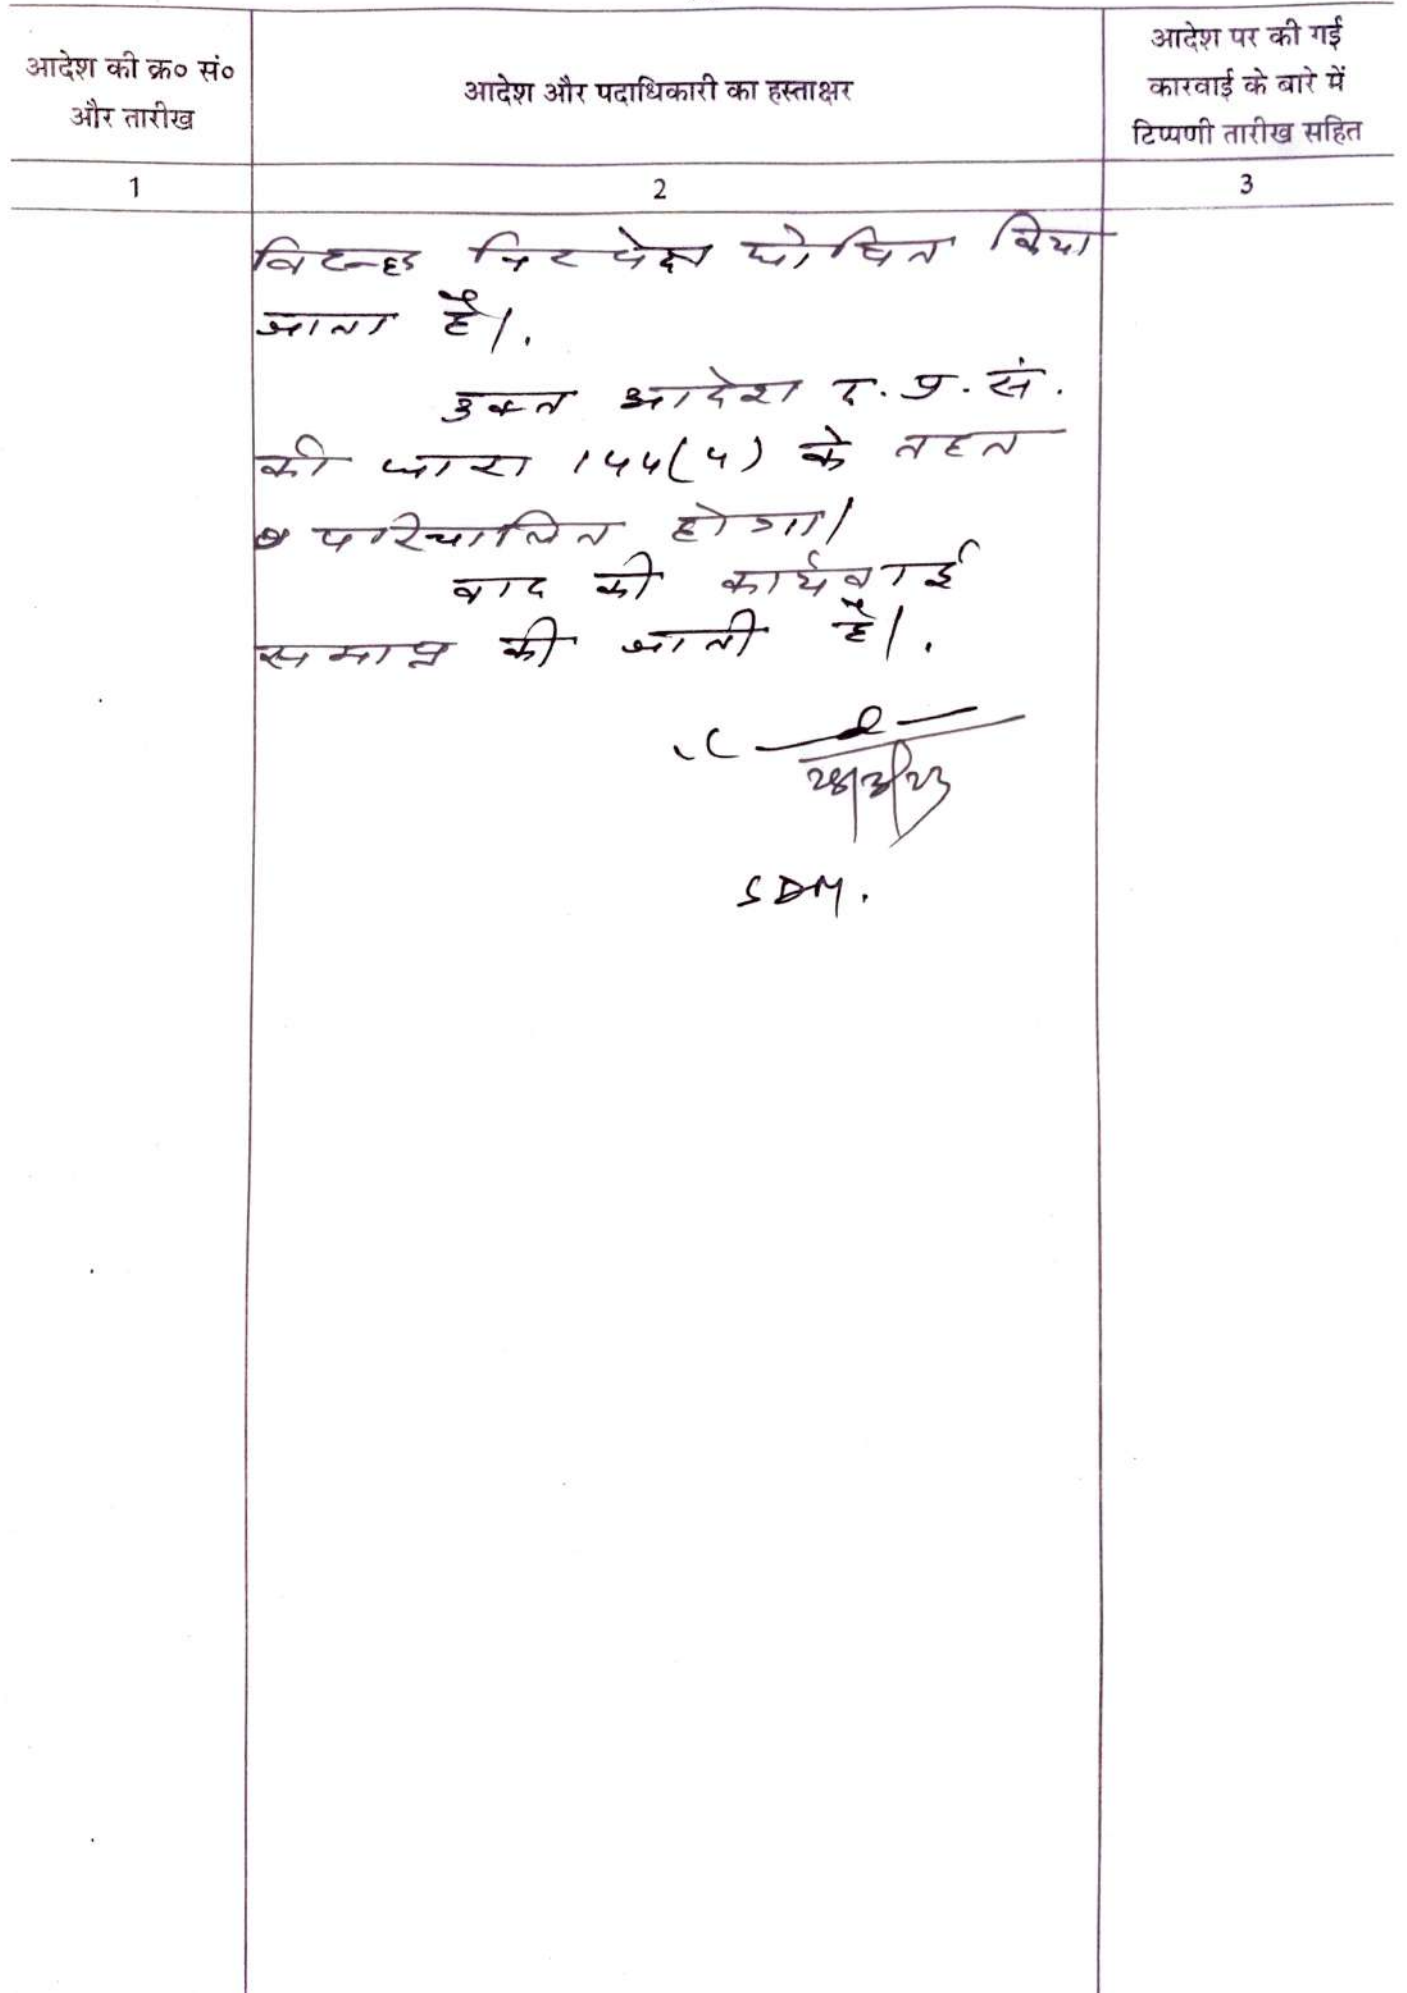 आदेश की क्र० सं०
और तारीख
आदेश और पदाधिकारी का हस्ताक्षर
आदेश पर की गई
कारवाई के बारे में
टिप्पणी तारीख सहित
1
2
3
विरुद्ध निरपेक्ष घोषित किया
जाता है।
उक्त आदेश द. प्र. सं.
की धारा 144(4) के तहत
परिचालित होगा।
वाद की कार्यवाई
समाप्त की जाती है।
SDM.